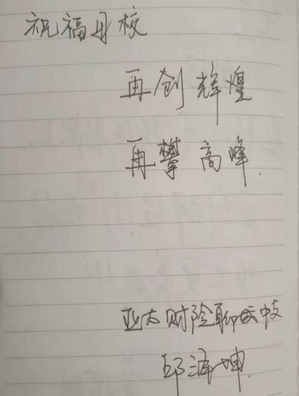 祝福母校
再创辉煌
再攀高峰
亚太财险聊城中支
邱泽坤